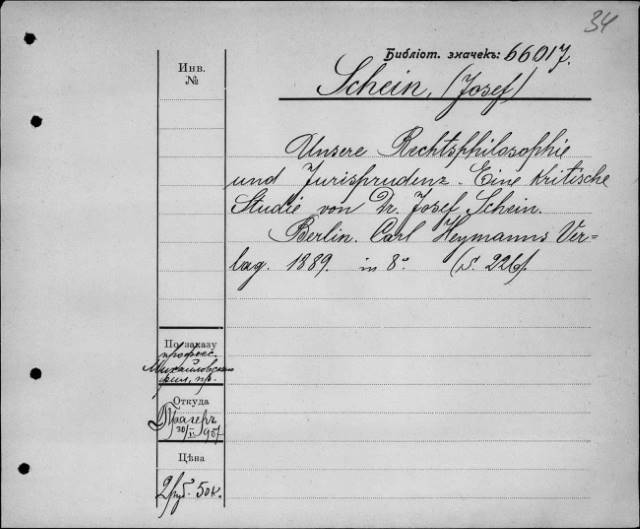 34
Библіот. значекъ: 66017.
Инв.
№
Schein, (Josef)
Unsere Rechtsphilosophie
und Jurisprudenz. Eine kritische
Studie von Dr. Josef Schein.
Berlin. Carl Heymanns Ver-
lag. 1889. in 8° (S. 226).
По заказу
професс.
Михайловскаго
фил. пр.
Откуда
Прагеръ
907
Цѣна
2 руб. 50 к.